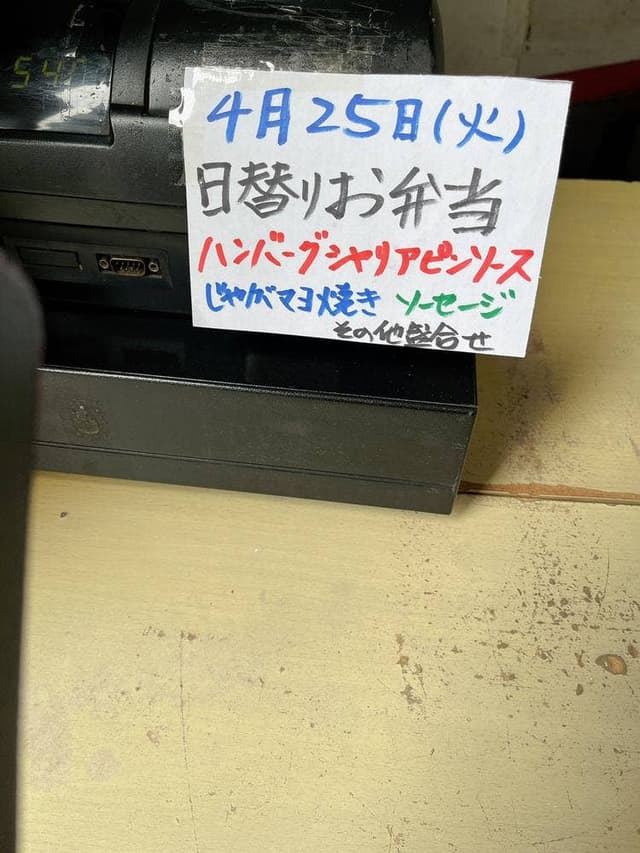 54
4月25日(火)
日替りお弁当
ハンバーグシャリアピンソース
じゃがマヨ焼き ソーセージ
その他盛合せ